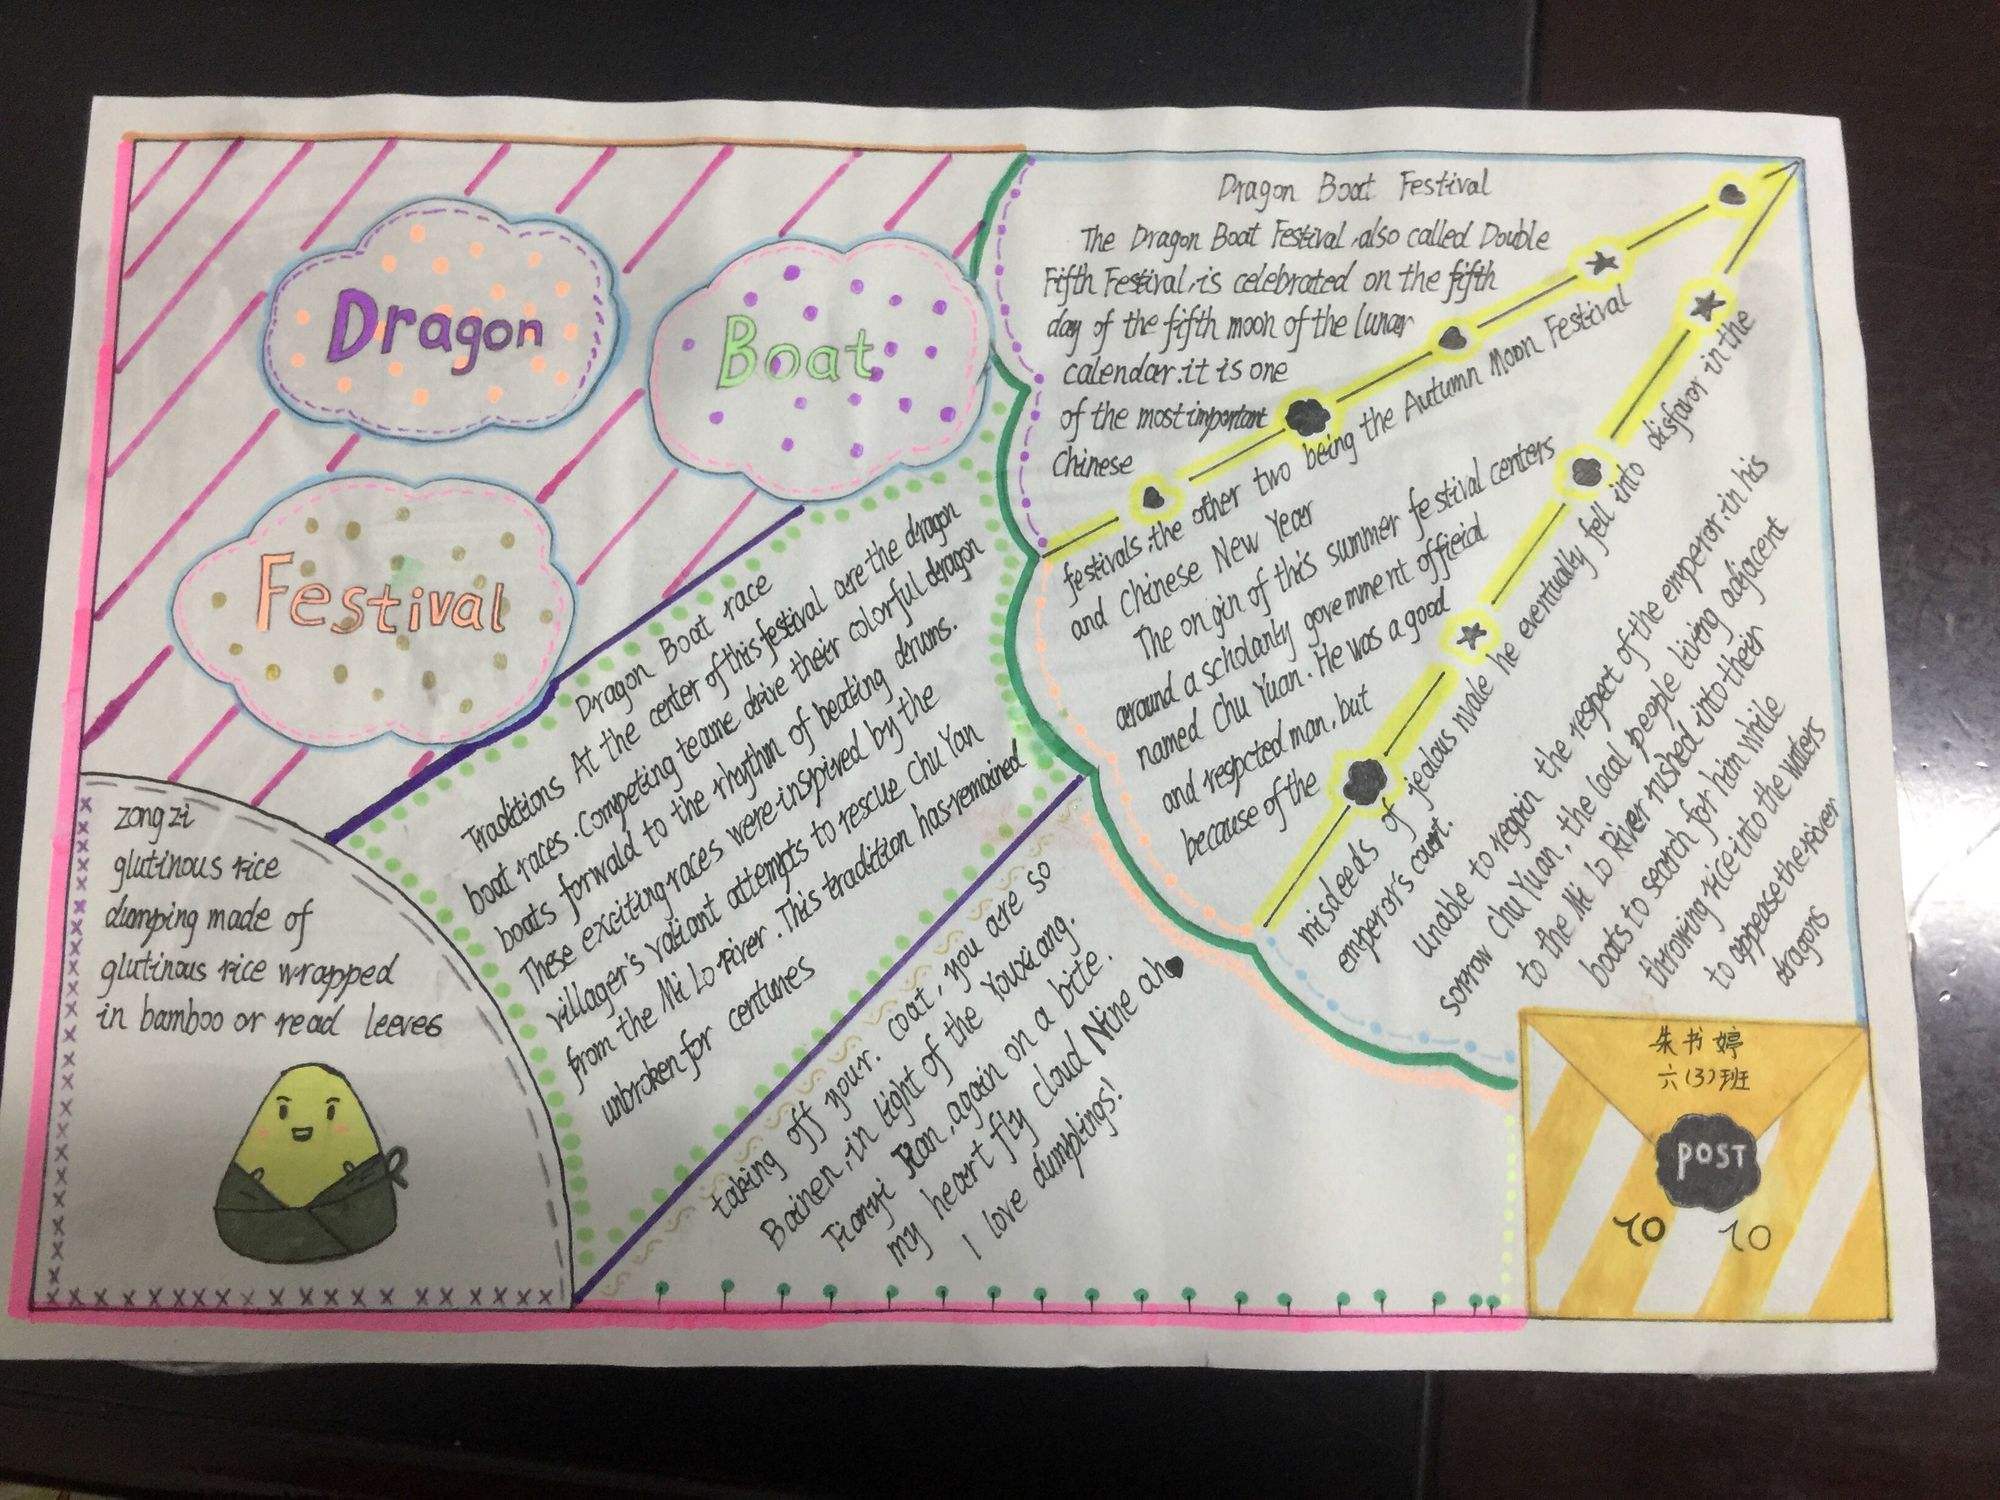 Dragon
Boat
Festival
Dragon Boat Festival
The Dragon Boat Festival, also called Double
Fifth Festival, is celebrated on the fifth
day of the fifth moon of the lunar
calendar. it is one
of the most important
Chinese
festivals, the other two being the Autumn Moon Festival
and Chinese New Year
The on gin of this summer festival centers
around a scholarly government official
named Chu Yuan. He was a good
and respcted man, but
because of the
misdeeds of jealous nvale he eventually fell into disfavor in the
emperor's court.
unable to regain the respect of the emperor, in his
sorrow Chu Yuan, the local people living adjacent
to the Mi Lo River rushed into their
boats to search for him while
throwing rice into the waters
to appease the River
dragons
Dragon Boat race
Traditions At the center of this festival are the dragon
boat races. Competing teame drive their colorful dragon
boats forwald to the rhythm of beating drums.
These exciting races were inspired by the
villager's valiant attempts to rescue Chu Yan
from the Mi Lo River. This tradition has remained
unbroken for centunes
zong zi
glutinous rice
dumping made of
glutinous rice wrapped
in bamboo or read leeves
taking off your. coat, you are so
Bainen, in light of the Youxiang.
Tianyi Jian, again on a bite.
my heart fly cloud Nine ah
I love dumplings!
朱书婷
六(3)班
POST